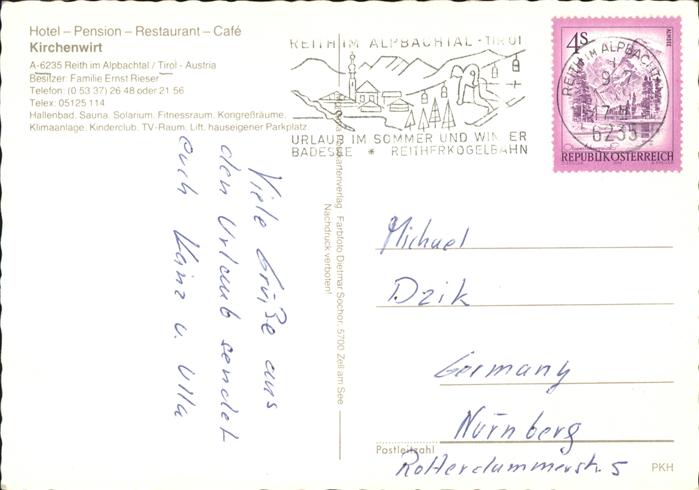 Hotel – Pension – Restaurant – Café
Kirchenwirt
A-6235 Reith im Alpbachtal / Tirol - Austria
Besitzer: Familie Ernst Rieser
Telefon: (0 53 37) 26 48 oder 21 56
Telex: 05125 114
Hallenbad, Sauna, Solarium, Fitnessraum, Kongreßräume,
Klimaanlage, Kinderclub, TV-Raum, Lift, hauseigener Parkplatz
REITH IM ALPBACHTAL - TIROL
URLAUB IM SOMMER UND WINTER
BADESEE * REITHERKOGELBAHN
4S
ALMSEE
REPUBLIK ÖSTERREICH
REITH IM ALPBACHTAL
6235
Viele Grüße aus
den Urlaub sendet
euch Heinz u. Ulla
Farbfoto Dietmar Sochor, 5700 Zell am See
Nachdruck verboten!
Michael
Dzik
Germany
Nürnberg
Postleitzahl
Rotterdammerstr. 5
PKH